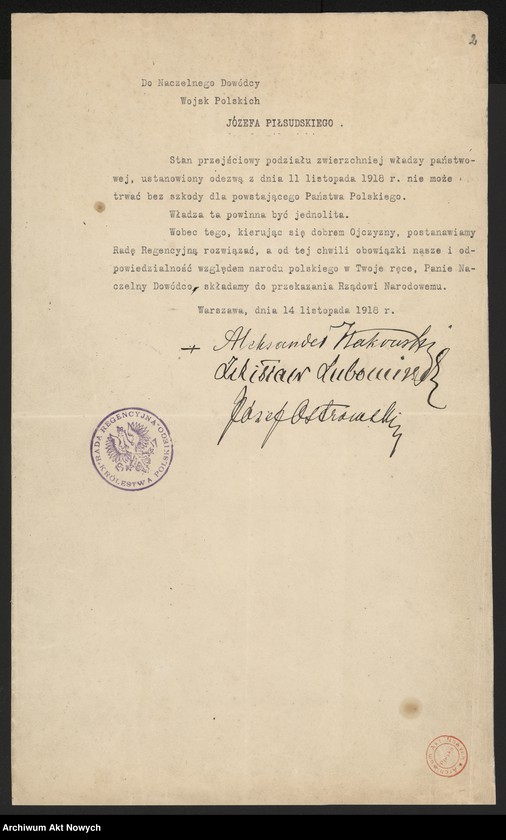 2
Do Naczelnego Dowódcy
Wojsk Polskich
JÓZEFA PIŁSUDSKIEGO .
Stan przejściowy podziału zwierzchniej władzy państwo-
wej, ustanowiony odezwą z dnia 11 listopada 1918 r. nie może
trwać bez szkody dla powstającego Państwa Polskiego.
Władza ta powinna być jednolita.
Wobec tego, kierując się dobrem Ojczyzny, postanawiamy
Radę Regencyjną rozwiązać, a od tej chwili obowiązki nasze i od-
powiedzialność względem narodu polskiego w Twoje ręce, Panie Na-
czelny Dowódco, składamy do przekazania Rządowi Narodowemu.
Warszawa, dnia 14 listopada 1918 r.
+ Aleksander Kakowski
Zdzisław Lubomirski
Józef Ostrowski
RADA REGENCYJNA KRÓLESTWA POLSKIEGO
Archiwum Akt Nowych